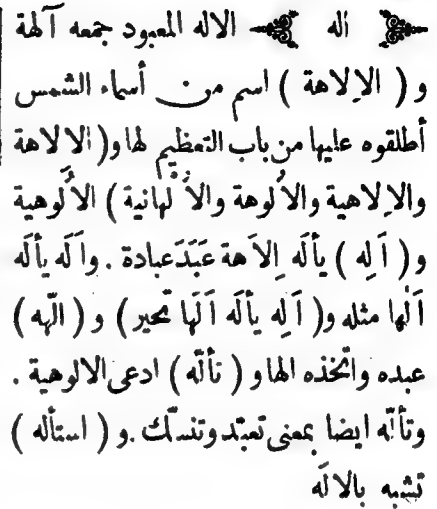 اله الاله المعبود جمعه آلهة
و ( الاِلاهة ) اسم من أسماء الشمس
أطلقوه عليها من باب التعظيم لها و( الالاهة
والاِلاهية والأُلوهة والأُلْهانية ) الأُلوهية
و ( أَلِه ) يألَه اِلاَهة عَبَدَ عبادة . وأَلَه يألَه
أَلْها مثله و( أَلِه يألَه أَلَها تحير ) و ( الّهه )
عبده واتخذه الها و ( تألّه ) ادعى الالوهية .
وتألّه ايضا بمعنى تعبّد وتنسّك . و ( استأله )
تشبه بالالَه